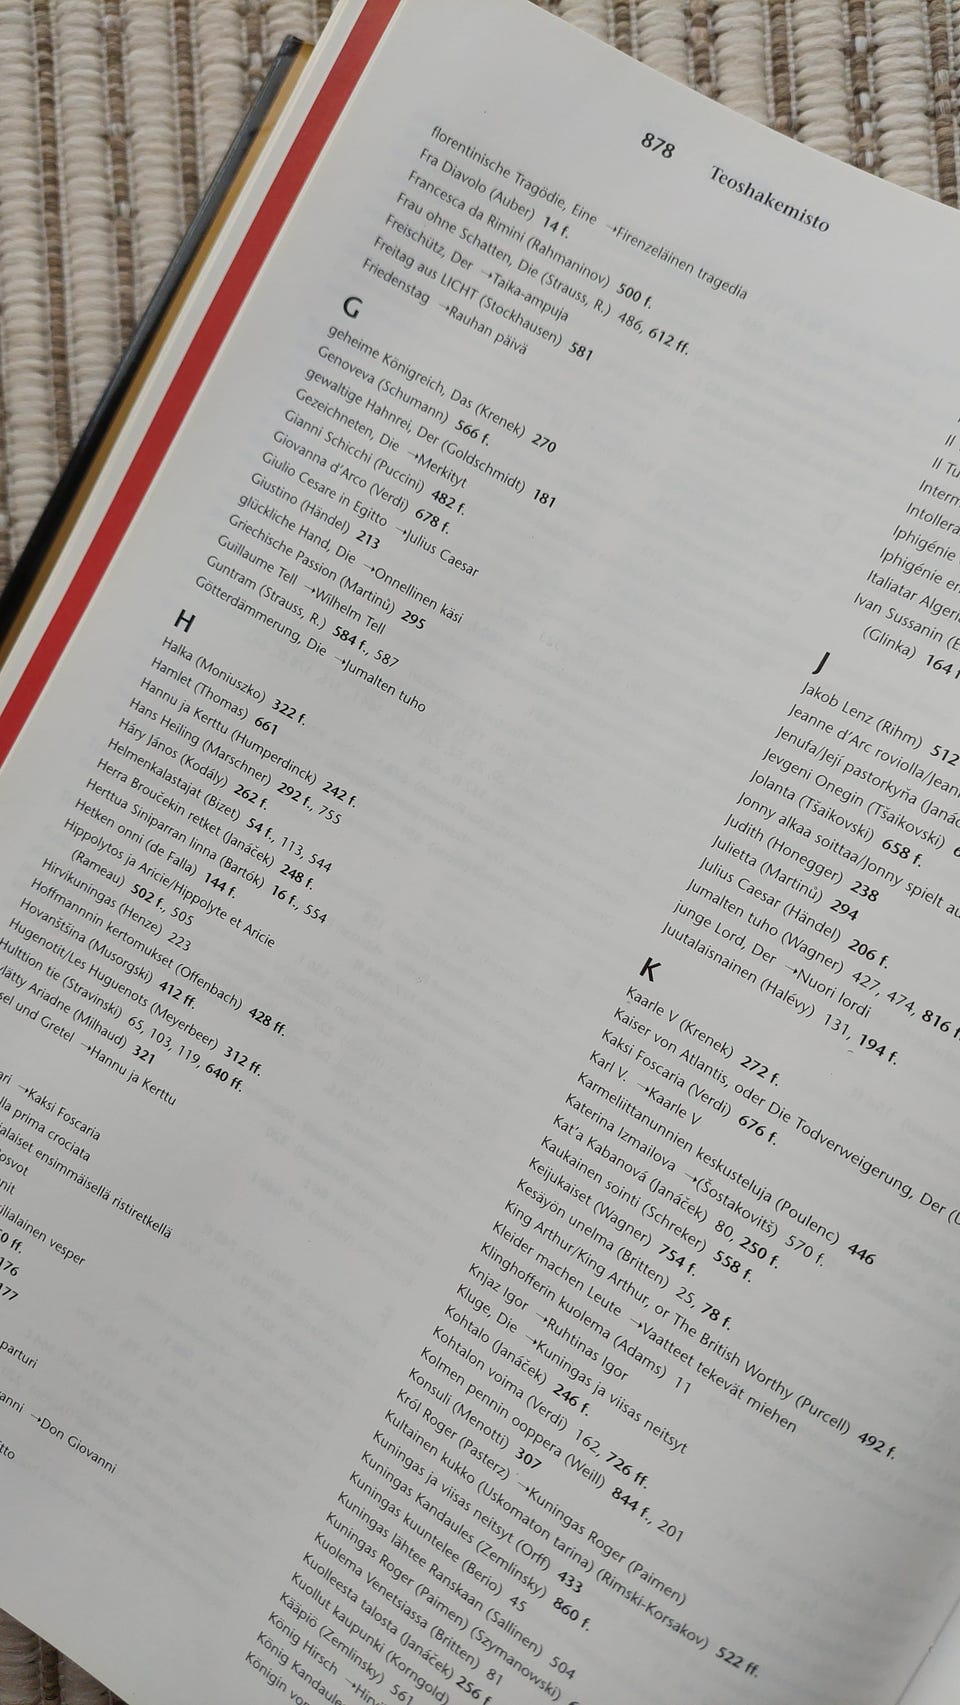 878 Teoshakemisto
florentinische Tragödie, Eine →Firenzeläinen tragedia
Fra Diavolo (Auber) 14 f.
Francesca da Rimini (Rahmaninov) 500 f.
Frau ohne Schatten, Die (Strauss, R.) 486, 612 ff.
Freischütz, Der →Taika-ampuja
Freitag aus LICHT (Stockhausen) 581
Friedenstag →Rauhan päivä
G
geheime Königreich, Das (Krenek) 270
Genoveva (Schumann) 566 f.
gewaltige Hahnrei, Der (Goldschmidt) 181
Gezeichneten, Die →Merkityt
Gianni Schicchi (Puccini) 482 f.
Giovanna d'Arco (Verdi) 678 f.
Giulio Cesare in Egitto →Julius Caesar
Giustino (Händel) 213
glückliche Hand, Die →Onnellinen käsi
Griechische Passion (Martinů) 295
Guillaume Tell →Wilhelm Tell
Guntram (Strauss, R.) 584 f., 587
Götterdämmerung, Die →Jumalten tuho
H
Halka (Moniuszko) 322 f.
Hamlet (Thomas) 661
Hannu ja Kerttu (Humperdinck) 242 f.
Hans Heiling (Marschner) 292 f., 755
Háry János (Kodály) 262 f.
Helmenkalastajat (Bizet) 54 f., 113, 544
Herra Broučekin retket (Janáček) 248 f.
Herttua Siniparran linna (Bartók) 16 f., 554
Hetken onni (de Falla) 144 f.
Hippolytos ja Aricie/Hippolyte et Aricie
(Rameau) 502 f., 505
Hirvikuningas (Henze) 223
Hoffmannnin kertomukset (Offenbach) 428 ff.
Hovanštšina (Musorgski) 412 ff.
Hugenotit/Les Huguenots (Meyerbeer) 312 ff.
Hulttion tie (Stravinski) 65, 103, 119, 640 ff.
lätty Ariadne (Milhaud) 321
sel und Gretel →Hannu ja Kerttu
ari →Kaksi Foscaria
lla prima crociata
ialaiset ensimmäisellä ristiretkellä
osvot
nit
ilialainen vesper
0 ff.
176
177
parturi
vanni →Don Giovanni
itto
Il
Il Tu
Interm
Intollera
Iphigénie
Iphigénie en
Italiatar Algeri
Ivan Sussanin (E
(Glinka) 164 f
J
Jakob Lenz (Rihm) 512
Jeanne d'Arc roviolla/Jean
Jenufa/Její pastorkyňa (Janáč
Jevgeni Onegin (Tšaikovski) 6
Jolanta (Tšaikovski) 658 f.
Jonny alkaa soittaa/Jonny spielt au
Judith (Honegger) 238
Julietta (Martinů) 294
Julius Caesar (Händel) 206 f.
Jumalten tuho (Wagner) 427, 474, 816 f
junge Lord, Der →Nuori lordi
Juutalaisnainen (Halévy) 131, 194 f.
K
Kaarle V (Krenek) 272 f.
Kaiser von Atlantis, oder Die Todverweigerung, Der (U
Kaksi Foscaria (Verdi) 676 f.
Karl V. →Kaarle V
Karmeliittanunnien keskusteluja (Poulenc) 446
Katerina Izmailova →(Šostakovitš) 570 f.
Kat'a Kabanová (Janáček) 80, 250 f.
Kaukainen sointi (Schreker) 558 f.
Keijukaiset (Wagner) 754 f.
Kesäyön unelma (Britten) 25, 78 f.
King Arthur/King Arthur, or The British Worthy (Purcell) 492 f.
Kleider machen Leute →Vaatteet tekevät miehen
Klinghofferin kuolema (Adams) 11
Knjaz Igor →Ruhtinas Igor
Kluge, Die →Kuningas ja viisas neitsyt
Kohtalo (Janáček) 246 f.
Kohtalon voima (Verdi) 162, 726 ff.
Kolmen pennin ooppera (Weill) 844 f., 201
Konsuli (Menotti) 307
Król Roger (Pasterz) →Kuningas Roger (Paimen)
Kultainen kukko (Uskomaton tarina) (Rimski-Korsakov) 522 ff.
Kuningas ja viisas neitsyt (Orff) 433
Kuningas Kandaules (Zemlinsky) 860 f.
Kuningas kuuntelee (Berio) 45
Kuningas lähtee Ranskaan (Sallinen) 504
Kuningas Roger (Paimen) (Szymanowski) 6
Kuolema Venetsiassa (Britten) 81
Kuolleesta talosta (Janáček) 256 f.
Kuollut kaupunki (Korngold)
Kääpiö (Zemlinsky) 561
König Hirsch →Hirvi
König Kandaule
Königin vor